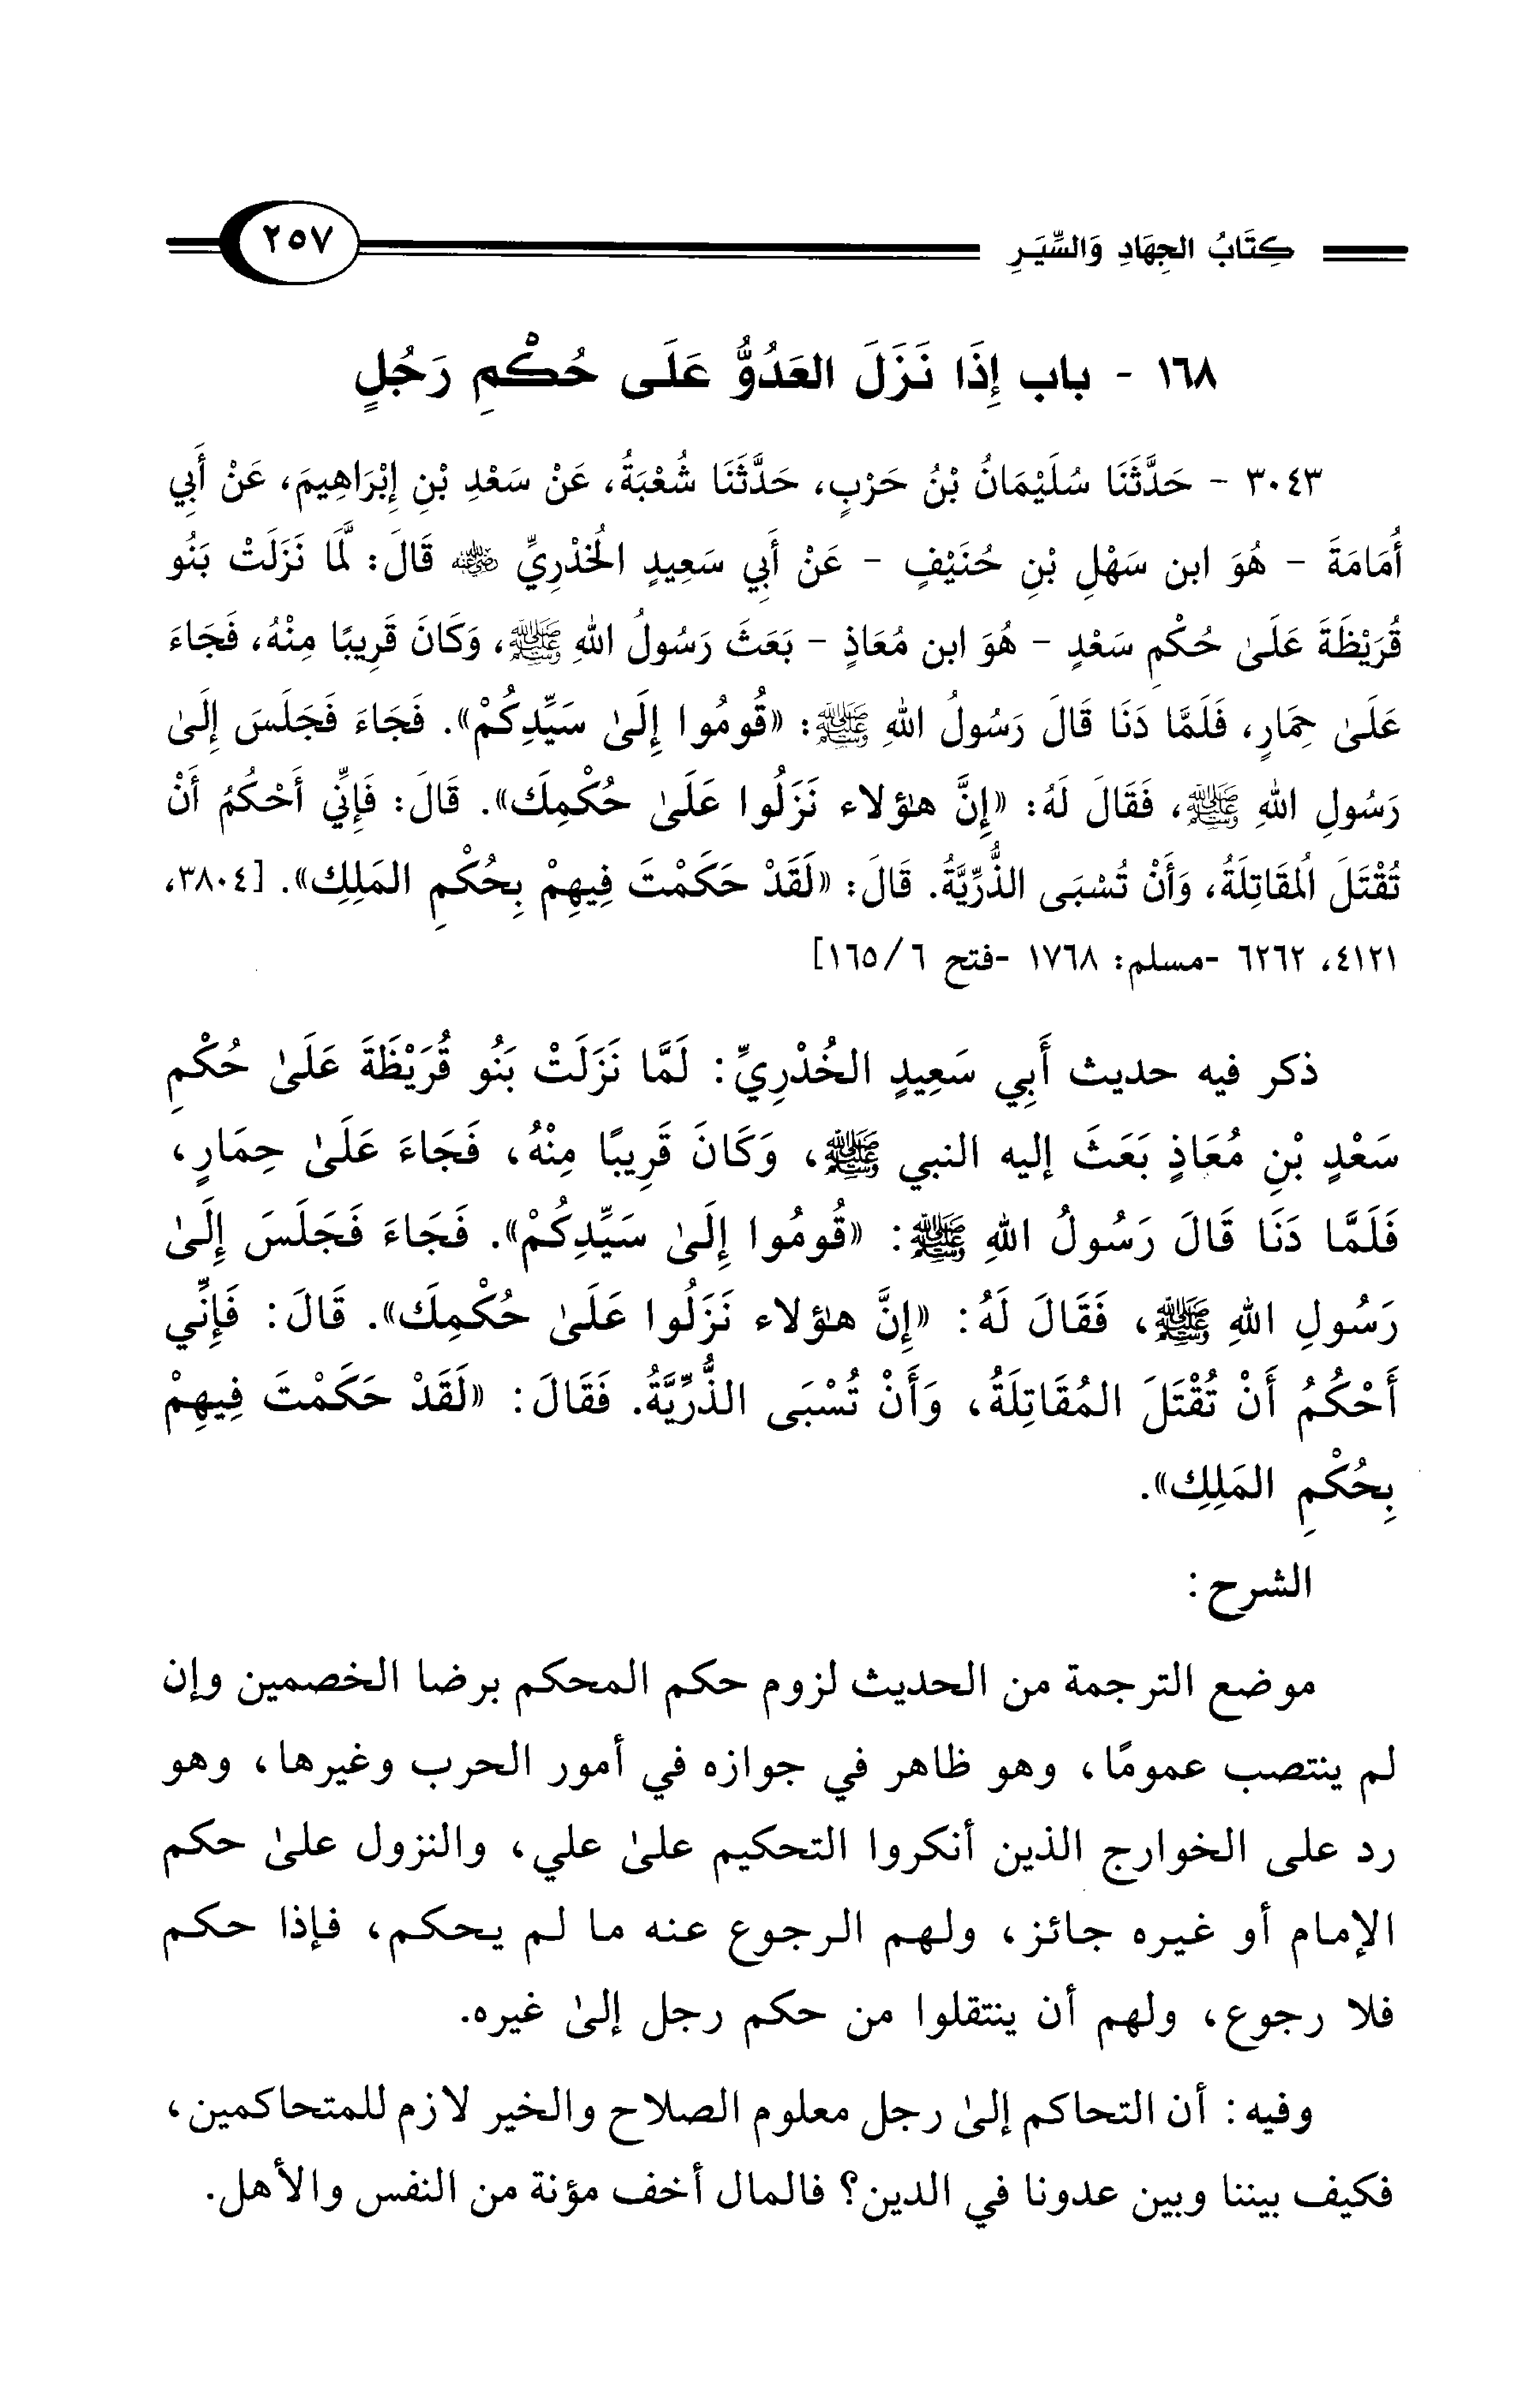 كِتَابُ الجِهَادِ وَالسِّيَرِ ٢٥٧
١٦٨ - باب إِذَا نَزَلَ العَدُوُّ عَلَى حُكْمِ رَجُلٍ
٣٠٤٣ - حَدَّثَنَا سُلَيْمَانُ بْنُ حَرْبٍ، حَدَّثَنَا شُعْبَةُ، عَنْ سَعْدِ بْنِ إِبْرَاهِيمَ، عَنْ أَبِي
أُمَامَةَ - هُوَ ابن سَهْلِ بْنِ حُنَيْفٍ - عَنْ أَبِي سَعِيدٍ الُخدْرِيِّ رضي الله عنه قَالَ: لَّمَا نَزَلَتْ بَنُو
قُرَيْظَةَ عَلَىٰ حُكْمِ سَعْدٍ - هُوَ ابن مُعَاذٍ - بَعَثَ رَسُولُ اللهِ ﷺ، وَكَانَ قَرِيبًا مِنْهُ، فَجَاءَ
عَلَىٰ حِمَارٍ، فَلَمَّا دَنَا قَالَ رَسُولُ اللهِ ﷺ: «قُومُوا إِلَىٰ سَيِّدِكُمْ». فَجَاءَ فَجَلَسَ إِلَىٰ
رَسُولِ اللهِ ﷺ، فَقَالَ لَهُ: «إِنَّ هؤلاء نَزَلُوا عَلَىٰ حُكْمِكَ». قَالَ: فَإِنِّي أَحْكُمُ أَنْ
تُقْتَلَ الُمقَاتِلَةُ، وَأَنْ تُسْبَى الذُّرِّيَّةُ. قَالَ: «لَقَدْ حَكَمْتَ فِيهِمْ بِحُكْمِ المَلِكِ». [٣٨٠٤،
٤١٢١، ٦٢٦٢ -مسلم: ١٧٦٨ -فتح ٦/ ١٦٥]
ذكر فيه حديث أَبِي سَعِيدٍ الخُدْرِيِّ: لَمَّا نَزَلَتْ بَنُو قُرَيْظَةَ عَلَىٰ حُكْمِ
سَعْدٍ بْنِ مُعَاذٍ بَعَثَ إليه النبي ﷺ، وَكَانَ قَرِيبًا مِنْهُ، فَجَاءَ عَلَىٰ حِمَارٍ،
فَلَمَّا دَنَا قَالَ رَسُولُ اللهِ ﷺ: «قُومُوا إِلَىٰ سَيِّدِكُمْ». فَجَاءَ فَجَلَسَ إِلَىٰ
رَسُولِ اللهِ ﷺ، فَقَالَ لَهُ: «إِنَّ هؤلاء نَزَلُوا عَلَىٰ حُكْمِكَ». قَالَ: فَإِنِّي
أَحْكُمُ أَنْ تُقْتَلَ المُقَاتِلَةُ، وَأَنْ تُسْبَى الذُّرِّيَّةُ. فَقَالَ: «لَقَدْ حَكَمْتَ فِيهِمْ
بِحُكْمِ المَلِكِ».
الشرح:
موضع الترجمة من الحديث لزوم حكم المحكم برضا الخصمين وإن
لم ينتصب عمومًا، وهو ظاهر في جوازه في أمور الحرب وغيرها، وهو
رد على الخوارج الذين أنكروا التحكيم علىٰ علي، والنزول علىٰ حكم
الإمام أو غيره جائز، ولهم الرجوع عنه ما لم يحكم، فإذا حكم
فلا رجوع، ولهم أن ينتقلوا من حكم رجل إلىٰ غيره.
وفيه: أن التحاكم إلىٰ رجل معلوم الصلاح والخير لازم للمتحاكمين،
فكيف بيننا وبين عدونا في الدين؟ فالمال أخف مؤنة من النفس والأهل.